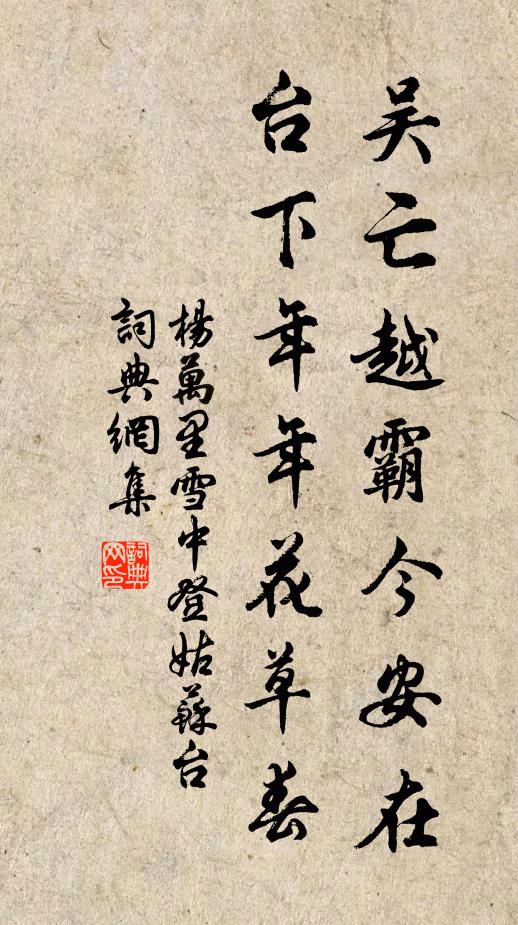 吴亡越霸今安在
台下年年花草春
楊萬里雪中登姑蘇台
詞典網集
詞典網印